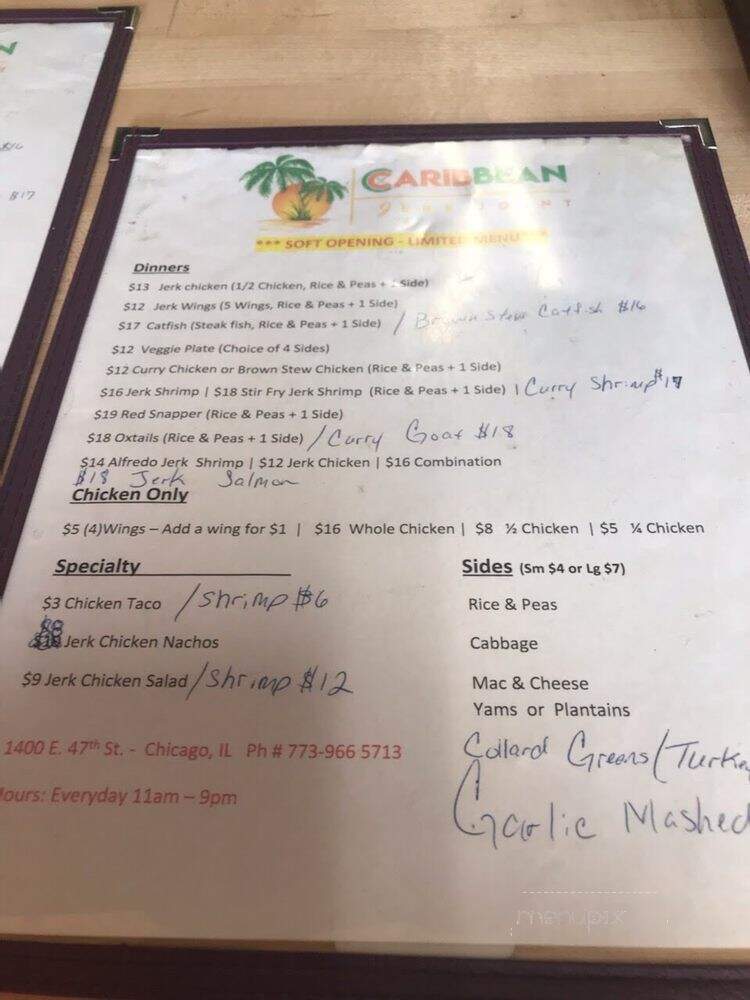 N
$16
$17
CARIBBEAN
JERK JOINT
*** SOFT OPENING - LIMITED MENU ***
Dinners
$13 Jerk chicken (1/2 Chicken, Rice & Peas + 1 Side)
$12 Jerk Wings (5 Wings, Rice & Peas + 1 Side)
$17 Catfish (Steak fish, Rice & Peas + 1 Side) / Brown Stew Catfish $16
$12 Veggie Plate (Choice of 4 Sides)
$12 Curry Chicken or Brown Stew Chicken (Rice & Peas + 1 Side)
$16 Jerk Shrimp | $18 Stir Fry Jerk Shrimp (Rice & Peas + 1 Side) | Curry Shrimp $17
$19 Red Snapper (Rice & Peas + 1 Side)
$18 Oxtails (Rice & Peas + 1 Side) / Curry Goat $18
$14 Alfredo Jerk Shrimp | $12 Jerk Chicken | $16 Combination
$18 Jerk Salmon
Chicken Only
$5 (4)Wings – Add a wing for $1 | $16 Whole Chicken | $8 ½ Chicken | $5 ¼ Chicken
Specialty
$3 Chicken Taco / Shrimp $6
$8 Jerk Chicken Nachos
$9 Jerk Chicken Salad / Shrimp $12
Sides (Sm $4 or Lg $7)
Rice & Peas
Cabbage
Mac & Cheese
Yams or Plantains
Collard Greens (Turkey
Garlic Mashed
1400 E. 47th St. - Chicago, IL Ph # 773-966 5713
Hours: Everyday 11am – 9pm
menupix